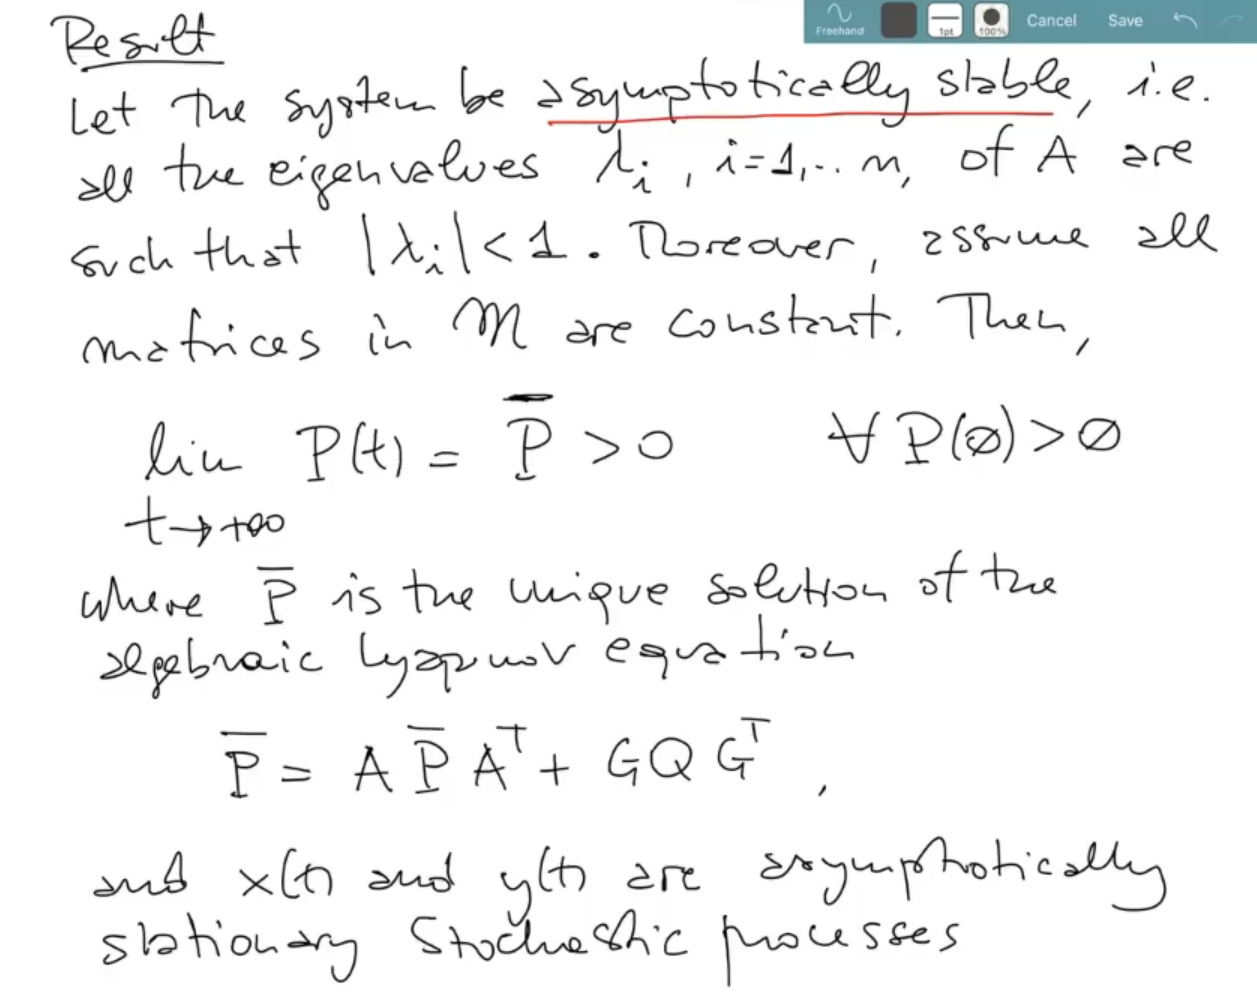 Freehand 1pt 100% Cancel Save
Result
Let the system be asymptotically stable, i.e.
all the eigenvalues λi, i=1,... n, of A are
such that |λi| < 1. Moreover, assume all
matrices in M are constant. Then,
lim P(t) = P̅ > 0 ∀ P(∅) > ∅
t→+∞
where P̅ is the unique solution of the
algebraic Lyapunov equation
P̅ = A P̅ Aᵀ + G Q Gᵀ ,
and x(t) and y(t) are asymptotically
stationary stochastic processes